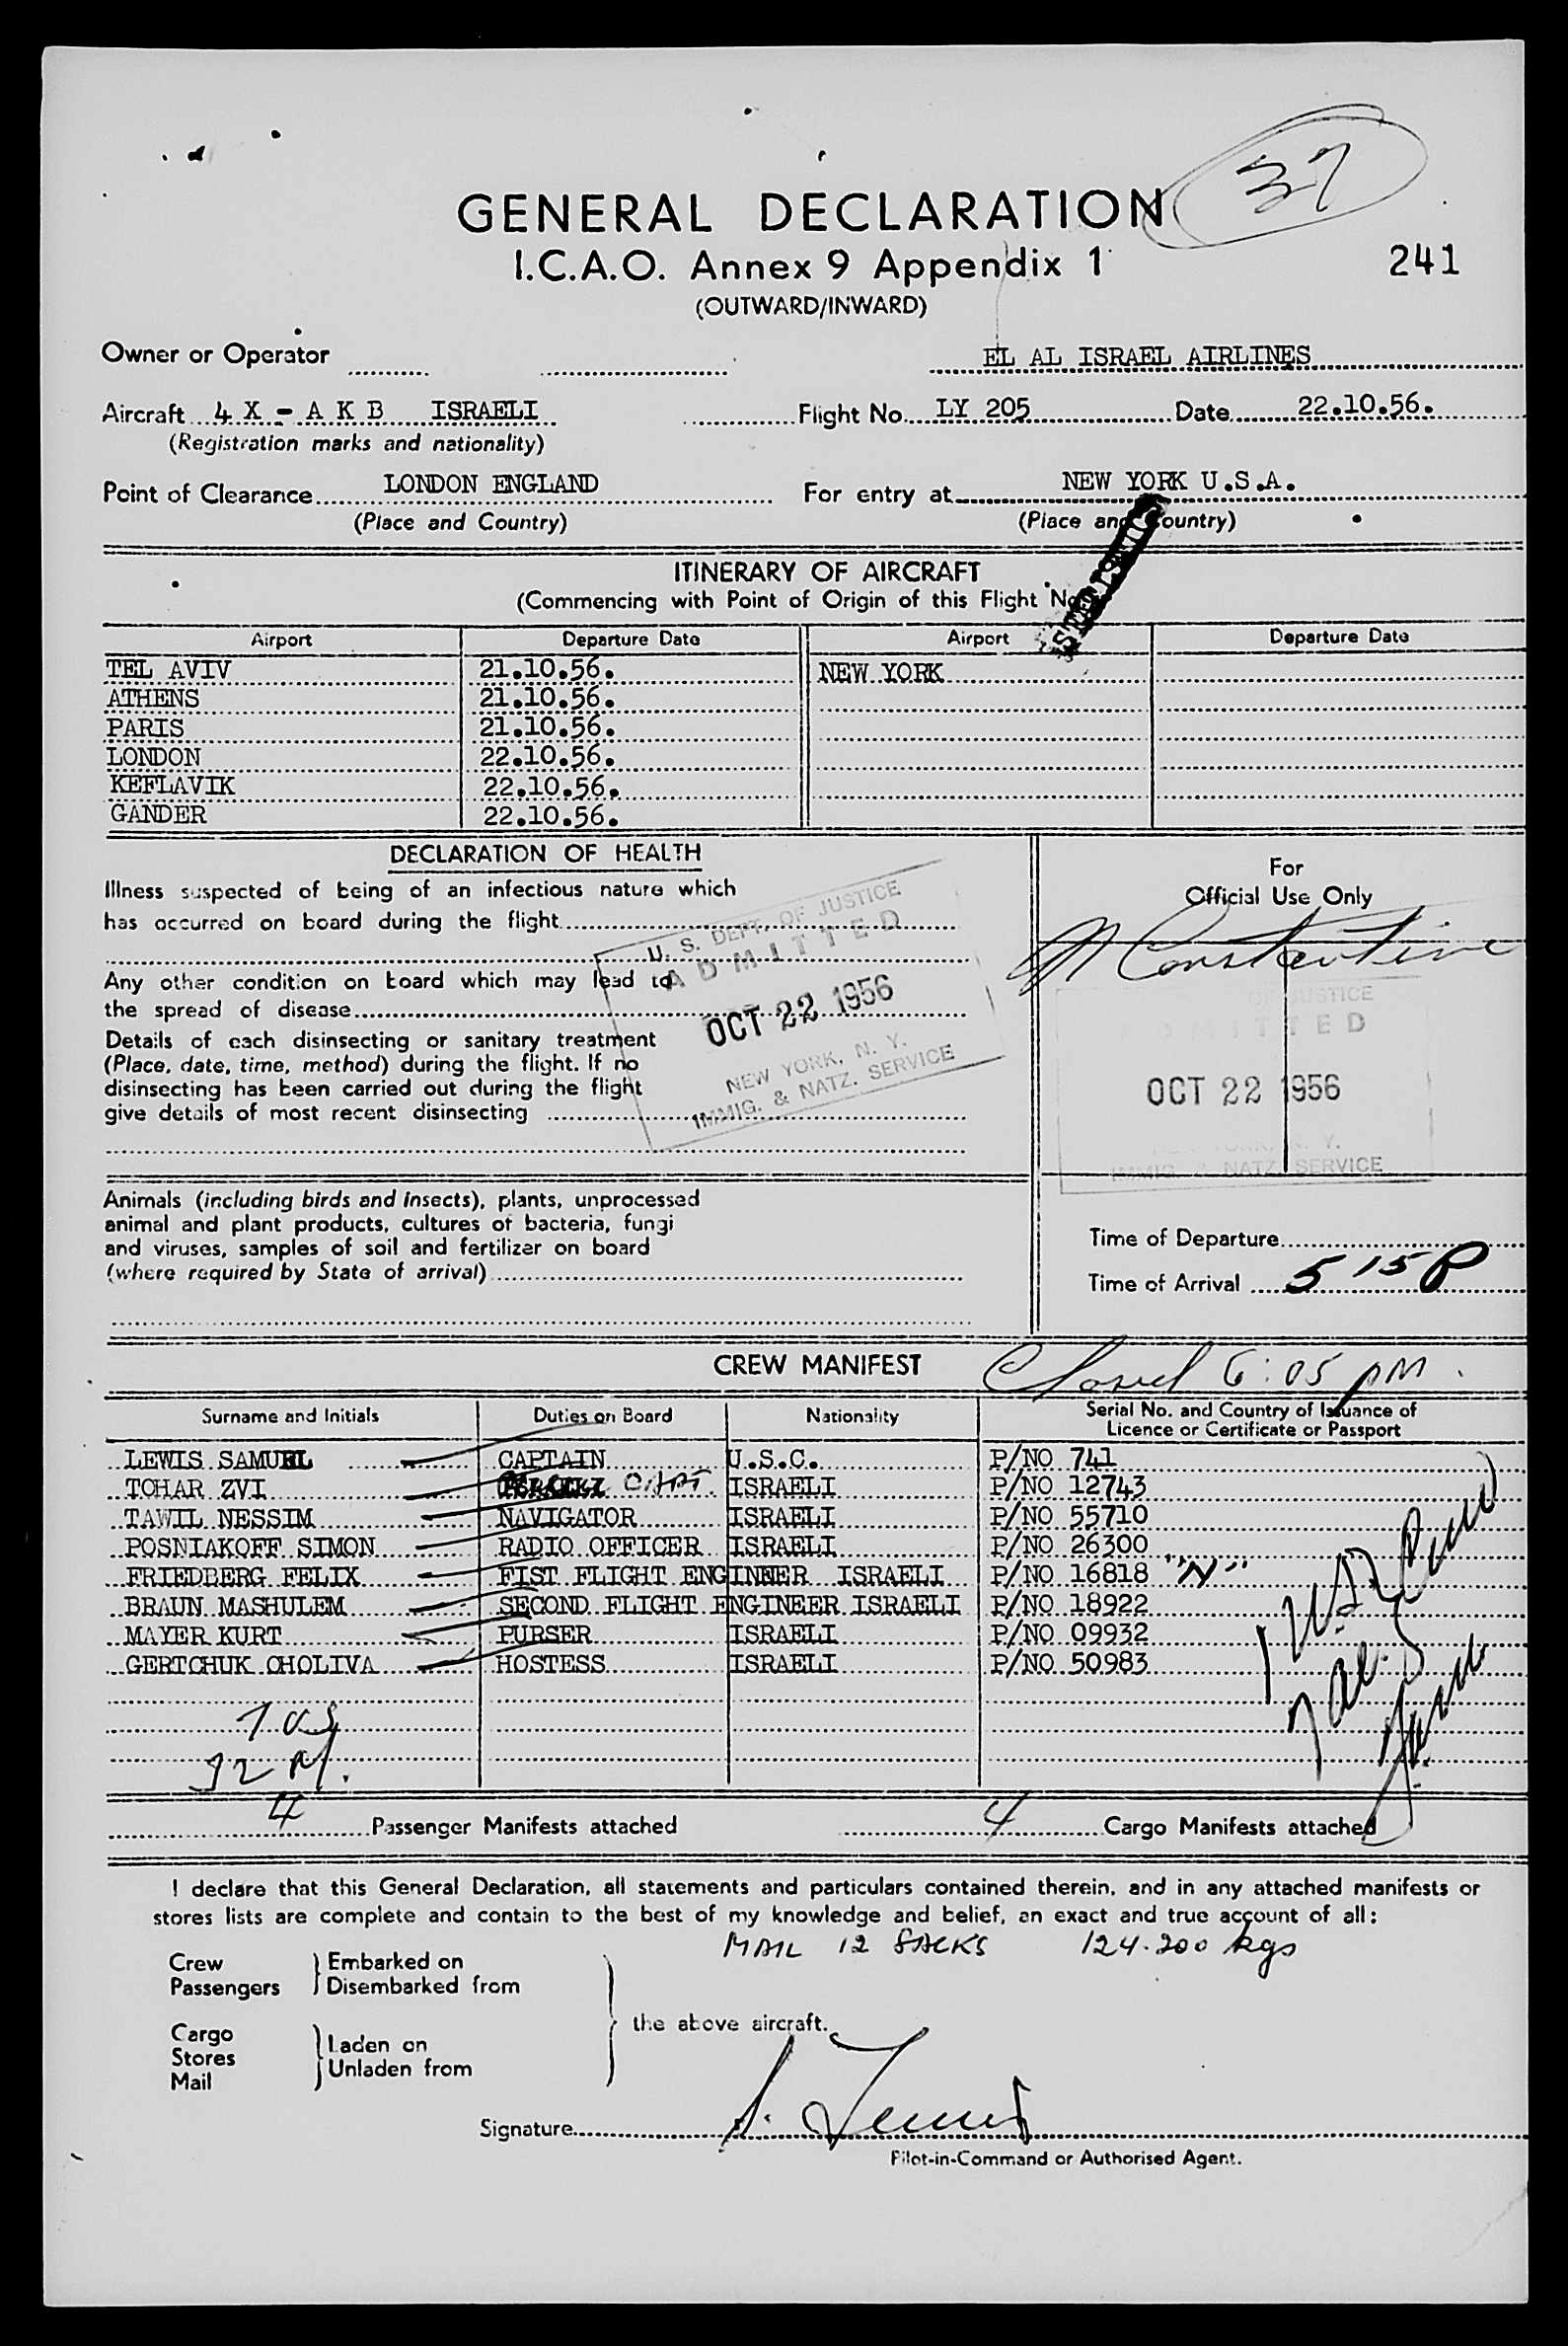 37
GENERAL DECLARATION
I.C.A.O. Annex 9 Appendix 1
241
(OUTWARD/INWARD)
Owner or Operator EL AL ISRAEL AIRLINES
Aircraft 4 X - A K B ISRAELI Flight No. LY 205 Date 22.10.56.
(Registration marks and nationality)
Point of Clearance LONDON ENGLAND For entry at NEW YORK U.S.A.
(Place and Country) (Place and Country)
STATISTICS
ITINERARY OF AIRCRAFT
(Commencing with Point of Origin of this Flight No.)
Airport Departure Date Airport Departure Date
TEL AVIV 21.10.56. NEW YORK
ATHENS 21.10.56.
PARIS 21.10.56.
LONDON 22.10.56.
KEFLAVIK 22.10.56.
GANDER 22.10.56.
DECLARATION OF HEALTH
Illness suspected of being of an infectious nature which
has occurred on board during the flight
Any other condition on board which may lead to
the spread of disease
Details of each disinsecting or sanitary treatment
(Place, date, time, method) during the flight. If no
disinsecting has been carried out during the flight
give details of most recent disinsecting
U. S. DEPT. OF JUSTICE
ADMITTED
OCT 22 1956
NEW YORK, N. Y.
IMMIG. & NATZ. SERVICE
For
Official Use Only
M Constantine
OF JUSTICE
ADMITTED
OCT 22 1956
N. Y.
IMMIG. & NATZ. SERVICE
Animals (including birds and insects), plants, unprocessed
animal and plant products, cultures of bacteria, fungi
and viruses, samples of soil and fertilizer on board
(where required by State of arrival)
Time of Departure
Time of Arrival 5 15 P
CREW MANIFEST
Closed 6:05 PM.
Surname and Initials Duties on Board Nationality Serial No. and Country of Issuance of
Licence or Certificate or Passport
LEWIS SAMUEL CAPTAIN U.S.C. P/NO 741
TOHAR ZVI CAPT. ISRAELI P/NO 12743
TAWIL NESSIM NAVIGATOR ISRAELI P/NO 55710
POSNIAKOFF SIMON RADIO OFFICER ISRAELI P/NO 26300
FRIEDBERG FELIX FIST FLIGHT ENGINEER ISRAELI P/NO 16818 "N"
BRAUN MASHULEM SECOND FLIGHT ENGINEER ISRAELI P/NO 18922
MAYER KURT PURSER ISRAELI P/NO 09932
GERTCHUK CHOLIVA HOSTESS ISRAELI P/NO 50983
4 Passenger Manifests attached 4 Cargo Manifests attached
I declare that this General Declaration, all statements and particulars contained therein, and in any attached manifests or
stores lists are complete and contain to the best of my knowledge and belief, an exact and true account of all:
MAIL 12 SACKS 124.200 kgs
Crew Embarked on
Passengers Disembarked from
the above aircraft.
Cargo Laden on
Stores
Unladen from
Mail
Signature S. Lewis
Pilot-in-Command or Authorised Agent.